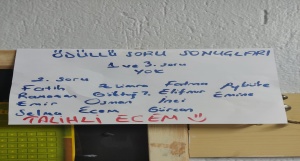 ÖDÜLLÜ SORU SONUÇLARI
1 ve 3. soru
YOK
2. soru
Fatih Zümra Fatma Aybüke
Ramazan Elifnur Emine
Emir Osman İnci
Selma Ecem Gürcan
TALİHLİ ECEM